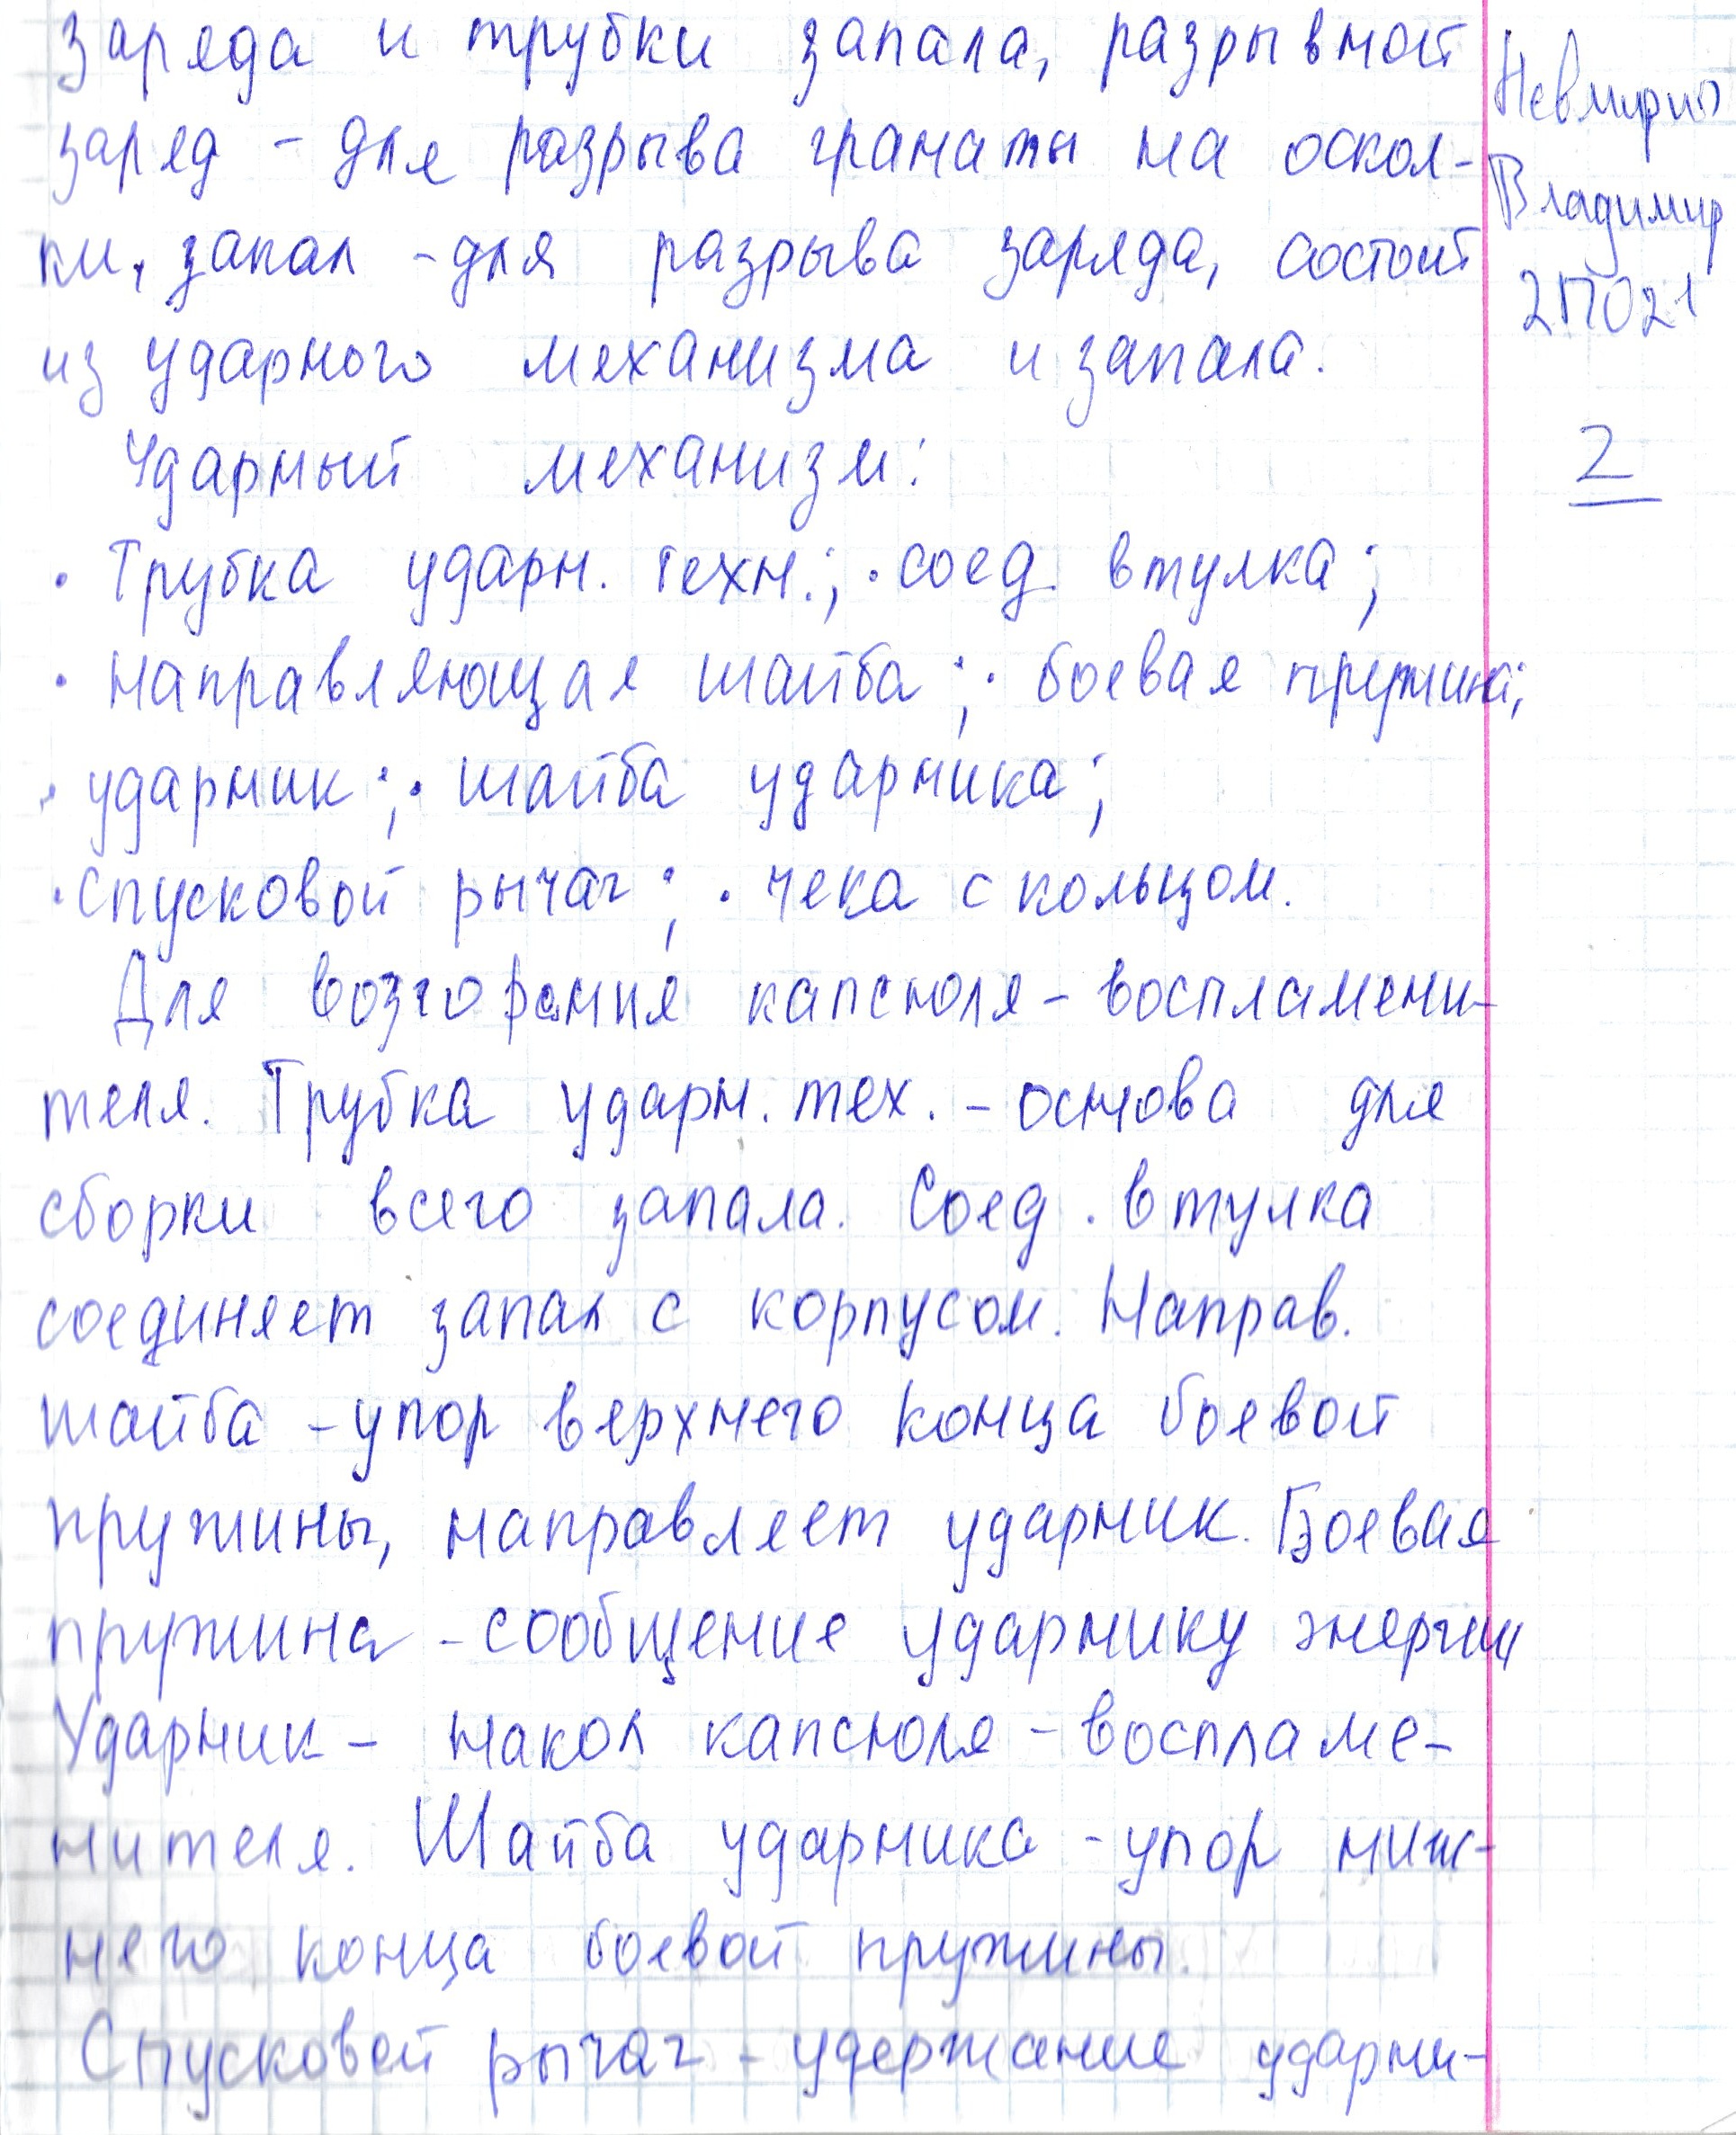 заряда и трубки запала, разрывной
заряд - для разрыва гранаты на оскол-
ки, запал - для разрыва заряда, состоит
из ударного механизма и запала.
Ударный механизм:
· Трубка ударн. техн.; · соед. втулка;
· направляющая шайба; · боевая пружина;
· ударник; · шайба ударника;
· спусковой рычаг; · чека с кольцом.
Для возгорания капсюля-воспламени-
теля. Трубка ударн. тех. - основа для
сборки всего запала. Соед. втулка
соединяет запал с корпусом. Направ.
шайба - упор верхнего конца боевой
пружины, направляет ударник. Боевая
пружина - сообщение ударнику энергии
Ударник - накол капсюля-воспламе-
нителя. Шайба ударника - упор ниж-
него конца боевой пружины.
Спусковой рычаг - удержание ударни-
Владимир
2ПО21
2